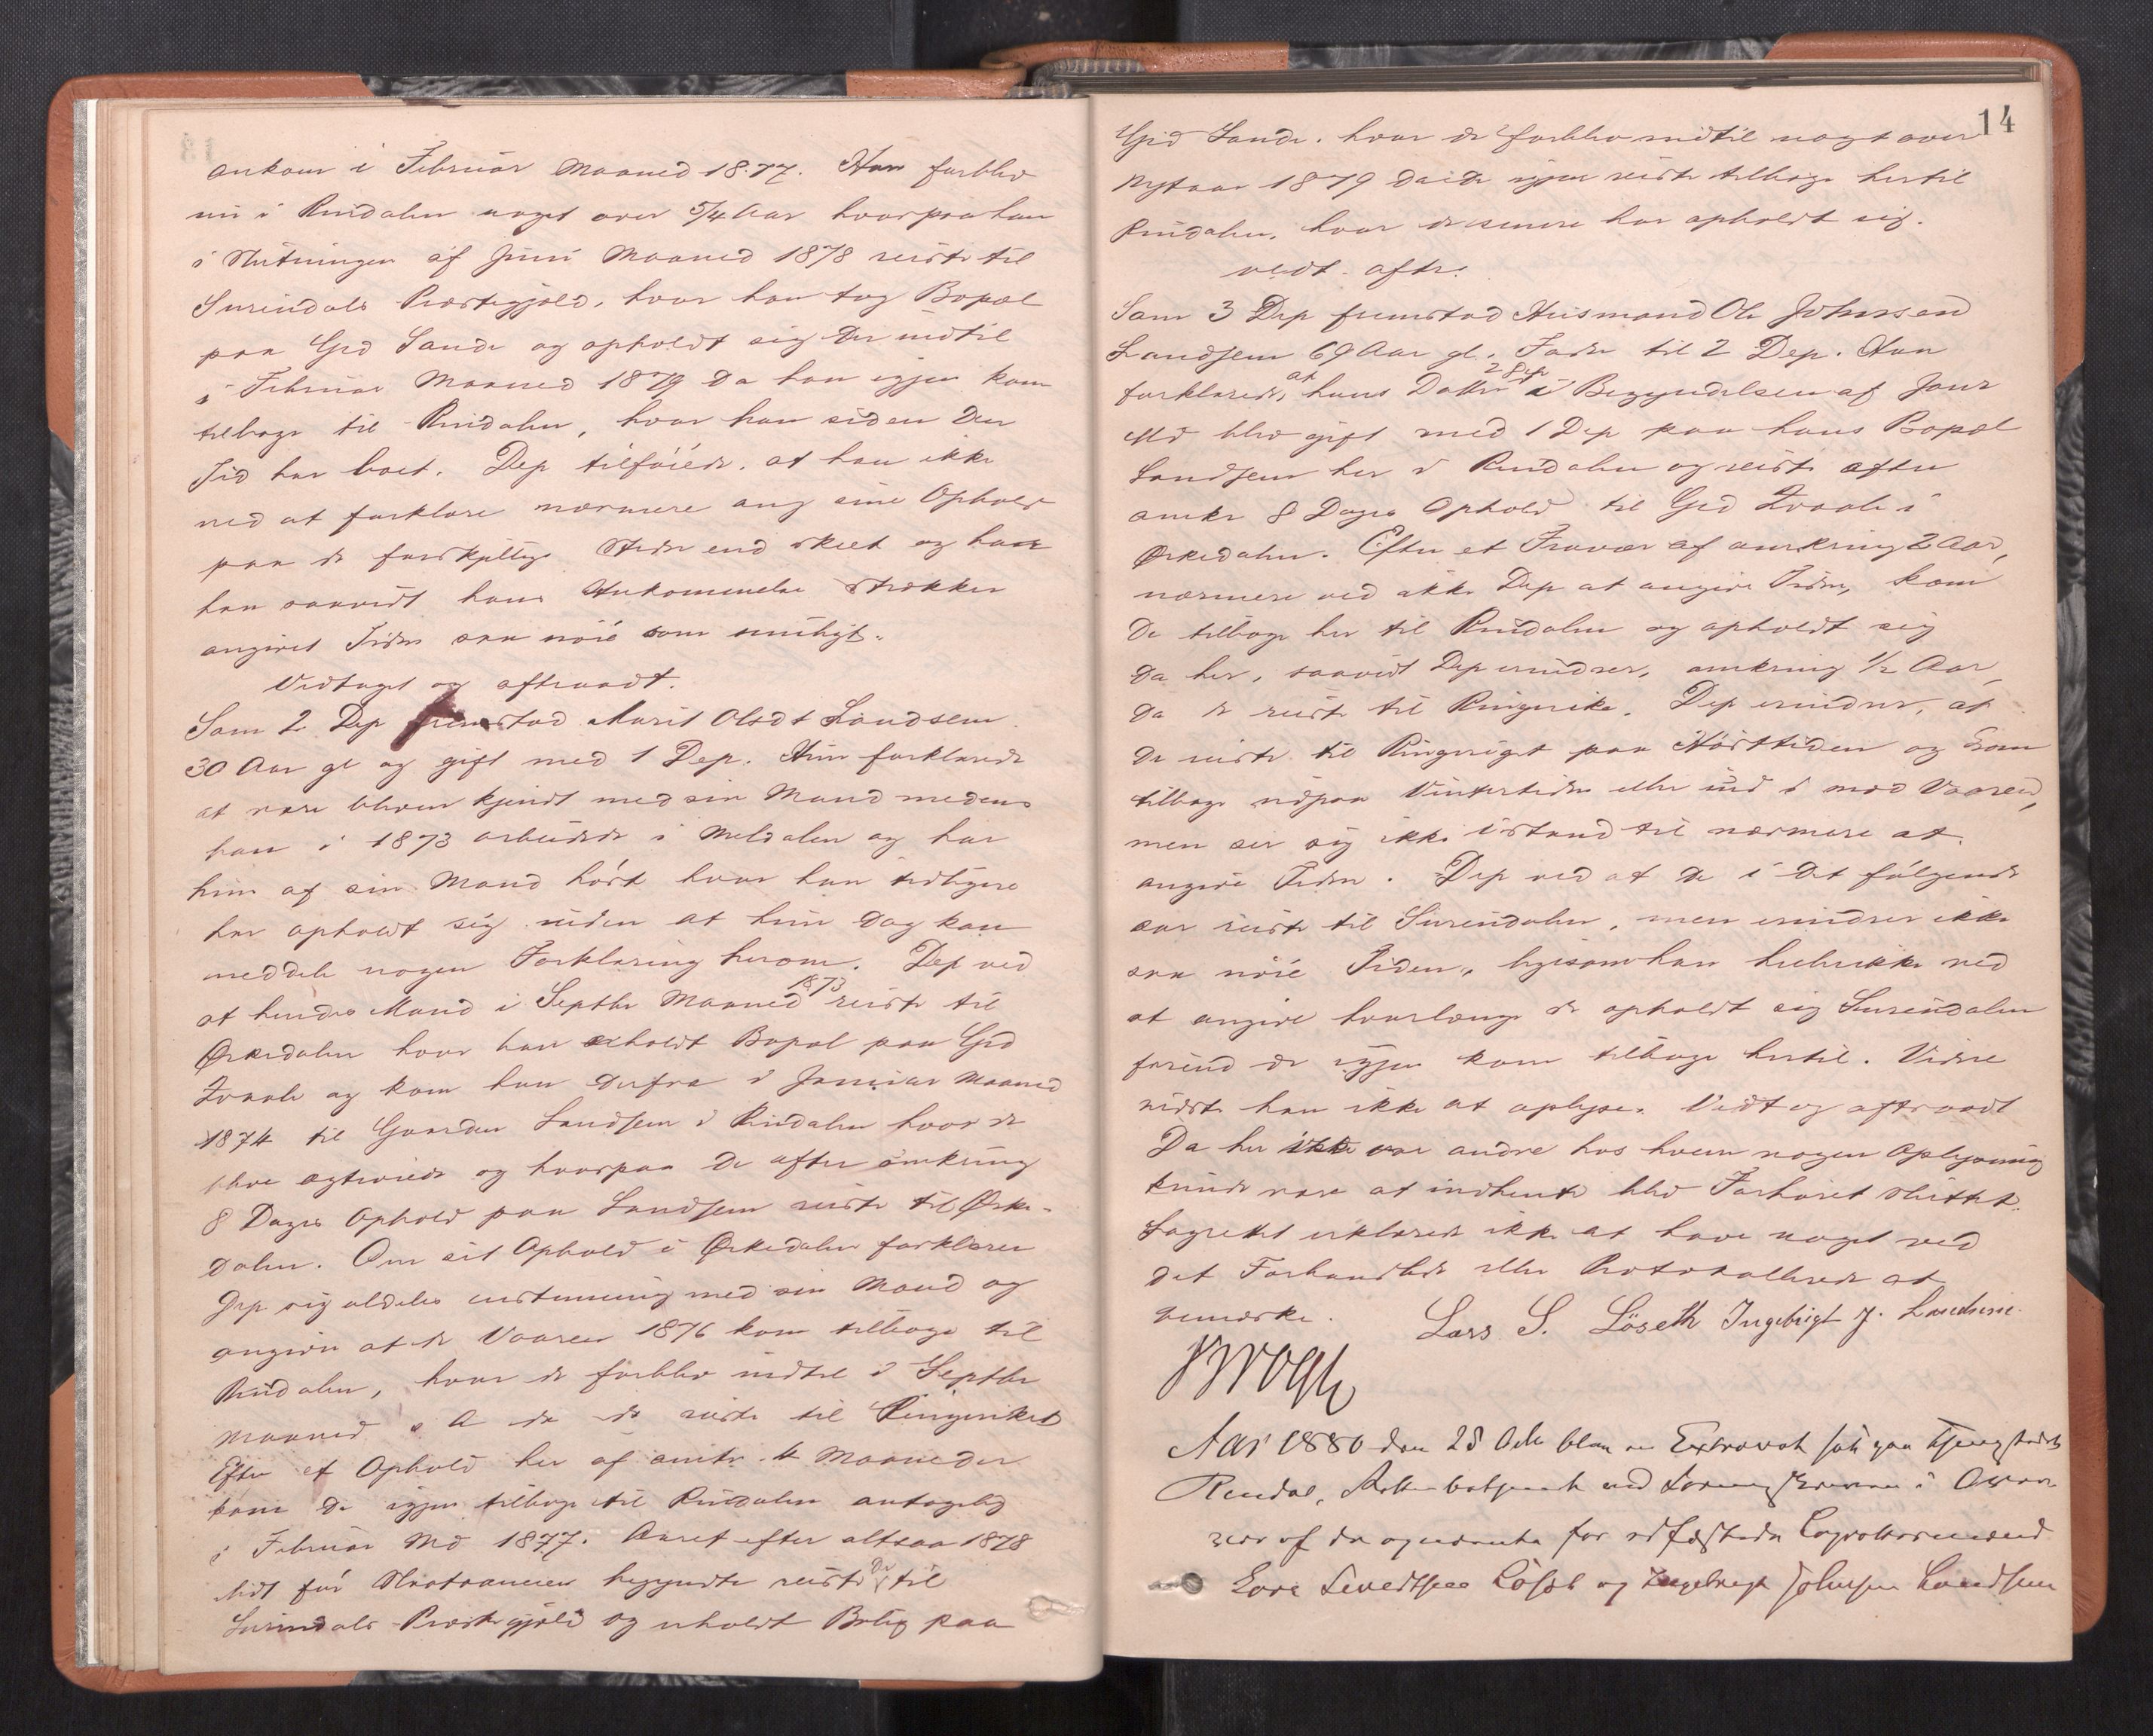 ankom i Februar Maaned 1877. Han forblev
nu i Rindalen noget over 5/4 Aar hvorpaa han
i Slutningen af Juni Maaned 1878 reiste til
Surendals Præstegjæld, hvor han tog Bopæl
paa Grd Sande og opholdt sig der indtil
i Februar Maaned 1879 da han igjen kom
tilbage til Rindalen, hvor han siden den
Tid har boet. Dep tilføiede, at han ikke
ved at forklare nærmere ang sine Ophold
paa de forskjellige Steder end skeet og har
han saavidt hans Hukommelse strækker
angivet Tiden saa nøie som muligt.
Vedtaget og aftraadt.
Som 2 Dep fremstod Marit Olsdt Landsem
30 Aar gl og gift med 1 Dep. Hun forklarede
at være bleven kjendt med sin Mand medens
han i 1873 arbeidede i Meldalen og har
hun af sin Mand hørt hvor han tidligere
har opholdt sig uden at hun dog kan
meddele nogen Forklaring herom. Dep ved
at hendes Mand i Septbr Maaned 1873 reiste til
Ørkedalen hvor han erholdt Bopæl paa Grd
og kom han derfra i Januar Maaned
1874 til Gaarden Landsem i Rindalen hvor de
blev ægteviede og hvorpaa de efter omkring
8 Dages Ophold paa Landsem reiste til Ørke-
dalen. Om sit Ophold i Ørkedalen forklarer
Dep sig aldeles enstemmig med sin Mand og
angiver at de Vaaren 1876 kom tilbage til
Rindalen, hvor de forblev indtil i Septbr
Maaned s A da de reiste til Ringeriket
Efter et Ophold her af omtr. 4 Maaneder
kom de igjen tilbage til Rindalen antagelig
i Februar Md 1877. Aaret efter altsaa 1878
lidt før Slaataannen begyndte reiste De til
Surendals Præstegjæld og erholdt Bolig paa
14
Grd Sande, hvor de forblev indtil noget over
Nytaar 1879 da de igjen reiste tilbage hertil
Rindalen, hvor de senere har opholdt sig.
vedt. aftr.
Som 3 Dep fremstod Husmand Ole Johnsen
Landsem 69 Aar gl, Fader til 2 Dep. Han
forklarede, at hans Datter 2 Dep i Begyndelsen af Janr
Md blev gift med 1 Dep paa hans Bopæl
Landsem her i Rindalen og reiste efter
omkr 8 Dages Ophold til Grd i
Ørkedalen. Efter et Fravær af omkring 2 Aar,
nærmere ved ikke Dep at angive Tiden, kom
de tilbage her til Rindalen og opholdt sig
da her, saavidt Dep erindrer, omkring 1/2 Aar,
da de reiste til Ringerike. Dep erindrer, at
de reiste til Ringeriget paa Høsttiden og kom
tilbage udpaa Vintertiden eller ind i mod Vaaren,
men ser sig ikke istand til nærmere at
angive Tiden. Dep ved at de i det følgende
aar reiste til Surendalen, men erindrer ikke
saa nøie Tiden, ligesom han heller ikke ved
at angive hvorlænge de opholdt sig Surendalen
forend de igjen kom tilbage hertil. Videre
vidste han ikke at oplyse. Vedt og aftraadt
Da her ikke var andre hos hvem nogen Oplysning
kunde være at indhente blev Forhøret sluttet.
Lagrettet erklærede ikke at have noget ved
det Forhandlede eller Protokollerede at
bemærke. Lars S. Löseth Ingebrigt J. Landsem
Aar 1880 den 28 Oktr blev en Extraret sat paa Thingstedet
Rindal, Retten betjent ved Sorenskriveren i Overvær
af de opnævnte før edfæstede Lagrettesmænd
Lars Sivertsen Løseth og Ingebrigt Johnsen Landsem